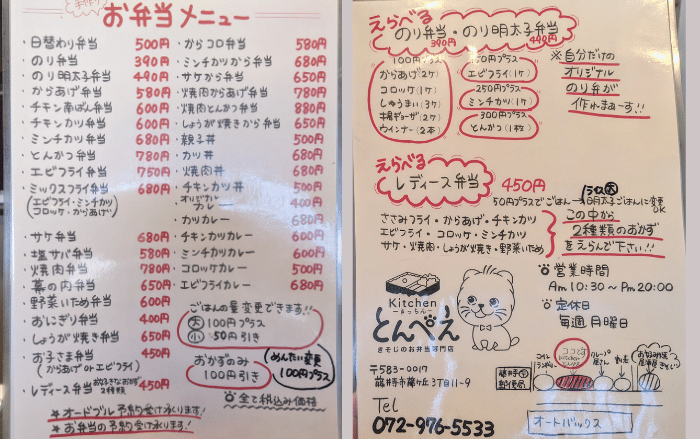 手作り
お弁当メニュー
・日替わり弁当 500円
・のり弁当 390円
・のり明太子弁当 490円
・からあげ弁当 580円
・チキン南ばん弁当 600円
・チキンカツ弁当 600円
・ミンチカツ弁当 680円
・とんかつ弁当 780円
・エビフライ弁当 750円
・ミックスフライ弁当 680円
(エビフライ・ミンチカツ
コロッケ・からあげ)
・サケ弁当 680円
・塩サバ弁当 580円
・焼肉弁当 780円
・幕の内弁当 650円
・野菜いため弁当 600円
・おにぎり弁当 400円
・しょうが焼き弁当 650円
・お子さま弁当 450円
(からあげ orエビフライ)
・レディース弁当 お好きなおかず2種類 450円
★オードブル予約受け承ります!
★お弁当の予約受け承ります!
・からコロ弁当 580円
・ミンチカツから弁当 680円
・サケから弁当 650円
・焼肉からあげ弁当 780円
・焼肉とんかつ弁当 880円
・しょうが焼きから弁当 650円
・親子丼 500円
・カツ丼 680円
・焼肉丼 680円
・チキンカツ丼 500円
・オリジナルカレー 400円
・カツカレー 680円
・チキンカツカレー 600円
・ミンチカツカレー 680円
・コロッケカレー 500円
・エビフライカレー 680円
ごはんの量変更できます!!
大 100円プラス
小 50円引き
おかずのみ
100円引き
めんたい変更
100円プラス
全て税込み価格
えらべる
のり弁当・のり明太子弁当
390円 490円
100円プラス
からあげ(2ケ)
コロッケ(1ケ)
しゅうまい(3ケ)
揚ギョーザ(2ケ)
ウインナー(2本)
150円プラス
エビフライ(1ケ)
250円プラス
ミンチカツ(1ケ)
300円プラス
とんかつ(1枚)
※自分だけの
オリジナル
のり弁が
作れまーす!!
えらべる
レディース弁当 450円
ライス大
50円プラスでごはん→明太子ごはんに変更
OK
ささみフライ・からあげ・チキンカツ
エビフライ・コロッケ・ミンチカツ
サケ・焼肉・しょうが焼き・野菜いため
この中から
2種類のおかず
をえらんで下さい!!
Kitchen
とんべえ
きそじのお弁当専門店
営業時間
Am10:30~Pm20:00
定休日
毎週月曜日
〒583-0017
藤井寺市藤ケ丘3丁目11-9
Tel
072-976-5533
藤井寺
郵便局
コイン
ランドリー
ココです
クレープ
屋さん
お好み焼
居酒屋
オートバックス